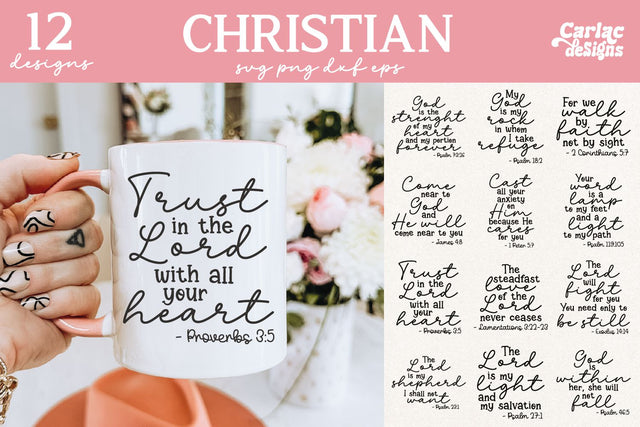 12
designs
CHRISTIAN
svg png dxf eps
Carlac
designs
Trust
in the
Lord
with all
your
heart
- Proverbs 3:5
God
is the
strenght
of my
heart
and my portion
forever
- Psalm 73:26
My
God
is my
rock
in whom
I take
refuge
- Psalm 18:2
For we
walk
by
faith
not by sight
- 2 Corinthians 5:7
Come
near to
God
and
He will
come near to you
- James 4:8
Cast
all your
anxiety
on
Him
because He
cares
for you
- 1 Peter 5:7
Your
word
is a
lamp
to my feet
and a
light
to my path
- Psalm 119:105
Trust
in the
Lord
with all
your
heart
- Proverbs 3:5
The
steadfast
love
of the
Lord
never ceases
- Lamentations 3:22-23
The
Lord
will
fight
for you
You need only to
be still
- Exodus 14:14
The
Lord
is my
shepherd
I shall not
want
- Psalm 23:1
The
Lord
is my
light
and
my salvation
- Psalm 27:1
God
is
within
her, she will
not
fall
- Psalm 46:5